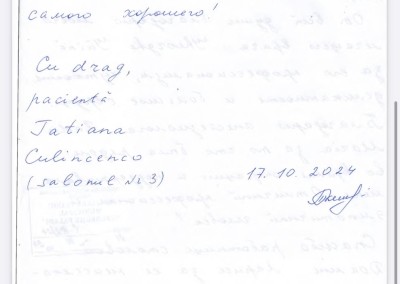 самого хорошего!
Cu drag,
pacientă
Tatiana
Culincenco
(salonul № 3)
17.10.2024